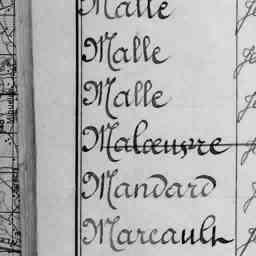 Malle
Malle
Malle
Malœuvre
Mandard
Marcault